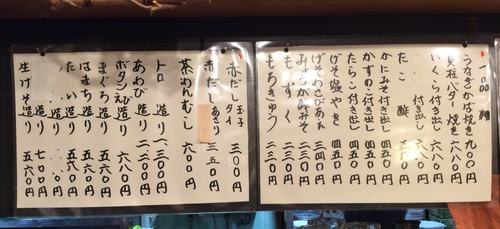 一品料理
うなぎかば焼き 九〇〇円
貝柱バター焼き 六八〇円
いくら付き出し 六八〇円
たこ酢
かにみそ付き出し 四五〇円
かずのこ付き出し 四五〇円
たらこ付き出し 四五〇円
げそ塩やき 四五〇円
げそわさびあえ 三四〇円
みょうがみそ 三四〇円
もずく 二三〇円
もろきゅう 二三〇円
赤だし 玉子 三〇〇円
赤だし あさり 三五〇円
茶わんむし 六〇〇円
トロ 造り 一三〇〇円
あわび 造り 一二三〇円
ボタンえび 造り 六八〇円
まぐろ 造り 五六〇円
はまち 造り 五六〇円
たい 造り 五六〇円
いか 造り
生げそ造り 五六〇円